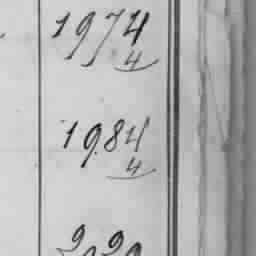 1974
4
1984
4